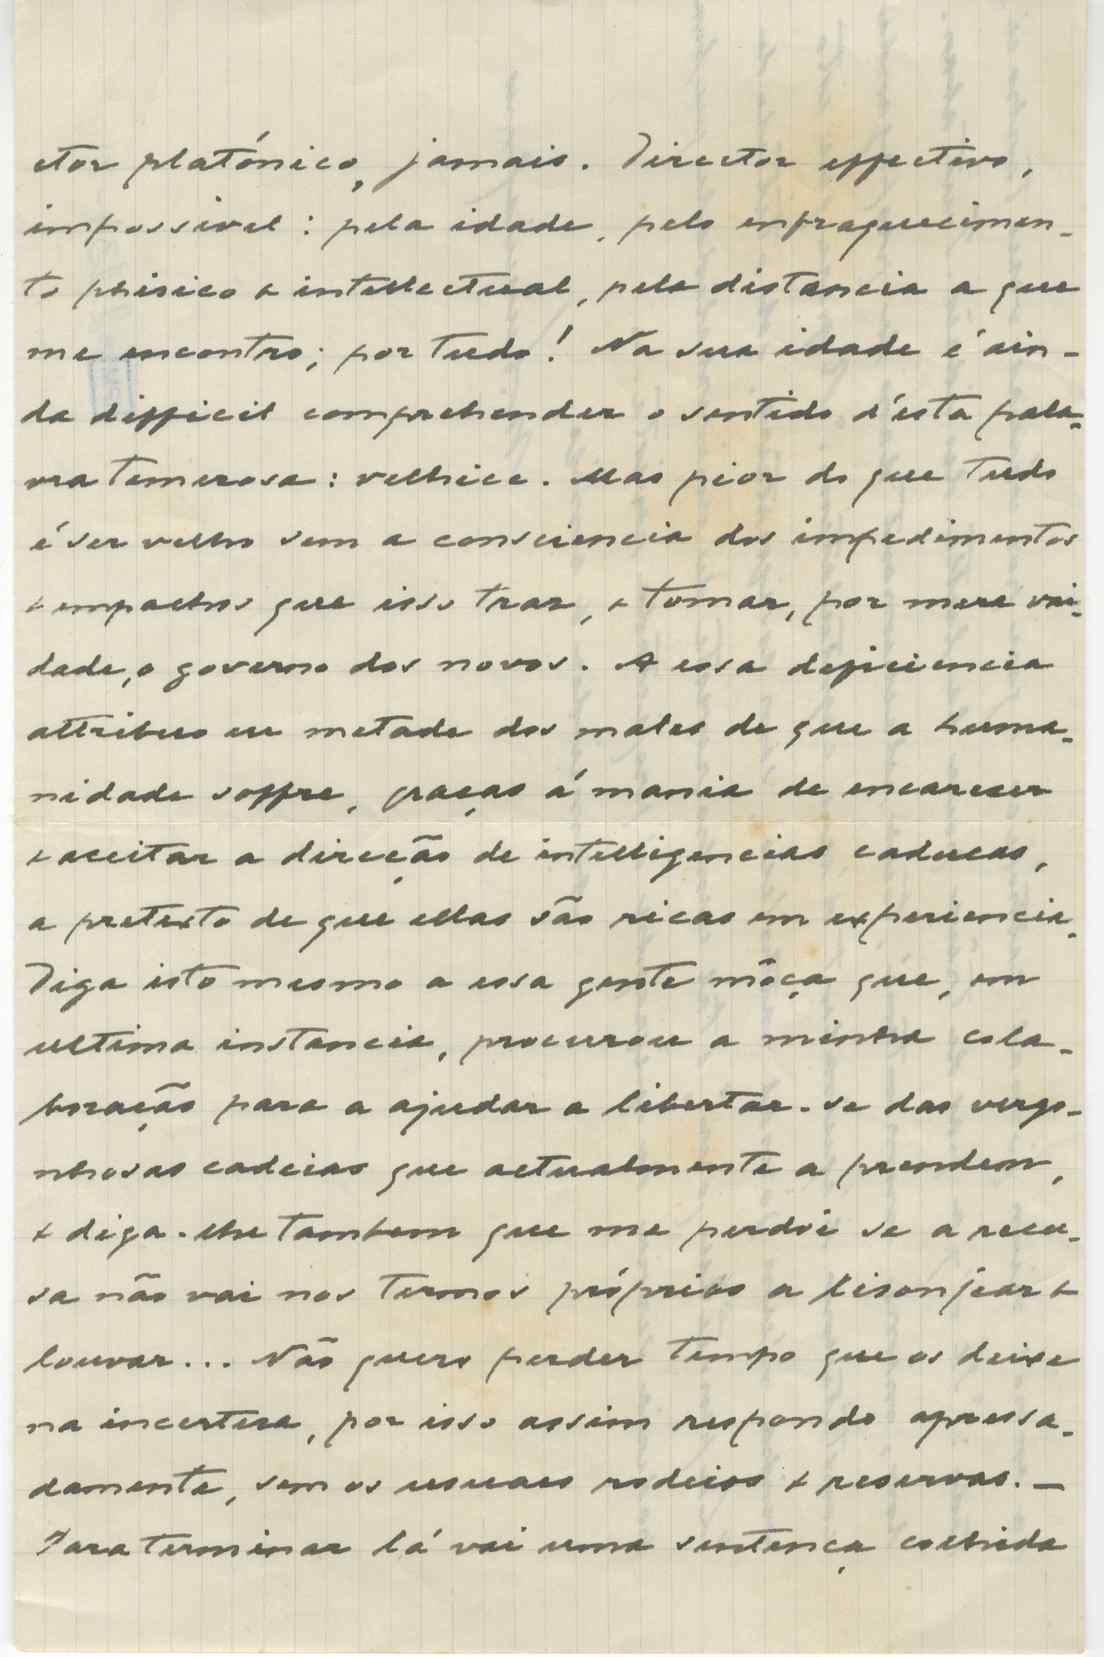 ctor platónico, jamais. Director effectivo,
impossivel: pela idade, pelo enfraquecimen-
to phisico & intellectual, pela distancia a que
me encontro; por tudo! Na sua idade é ain-
da difficil comprehender o sentido d'esta pala-
vra temerosa: velhice. Mas pior do que tudo
é ser velho sem a consciencia dos impedimentos
& empachos que isso traz, & tomar, por mera vai-
dade, o governo dos novos. A essa deficiencia
attribuo eu metade dos males de que a huma-
nidade soffre, graças á mania de encarecer
& acceitar a direcção de intelligencias caducas,
a pretexto de que ellas são ricas em experiencia.
Diga isto mesmo a essa gente môça que, em
ultima instancia, procurou a minha cola-
boração para a ajudar a libertar-se das vergo-
nhosas cadeias que actualmente a prendem,
& diga-lhe tambem que me perdôi se a recu-
sa não vai nos termos próprios a lisonjear &
louvar... Não quero perder tempo que os deixe
na incerteza, por isso assim respondo apressa-
damente, sem os usuaes rodeios & reservas. —
Para terminar lá vai uma sentença colhida